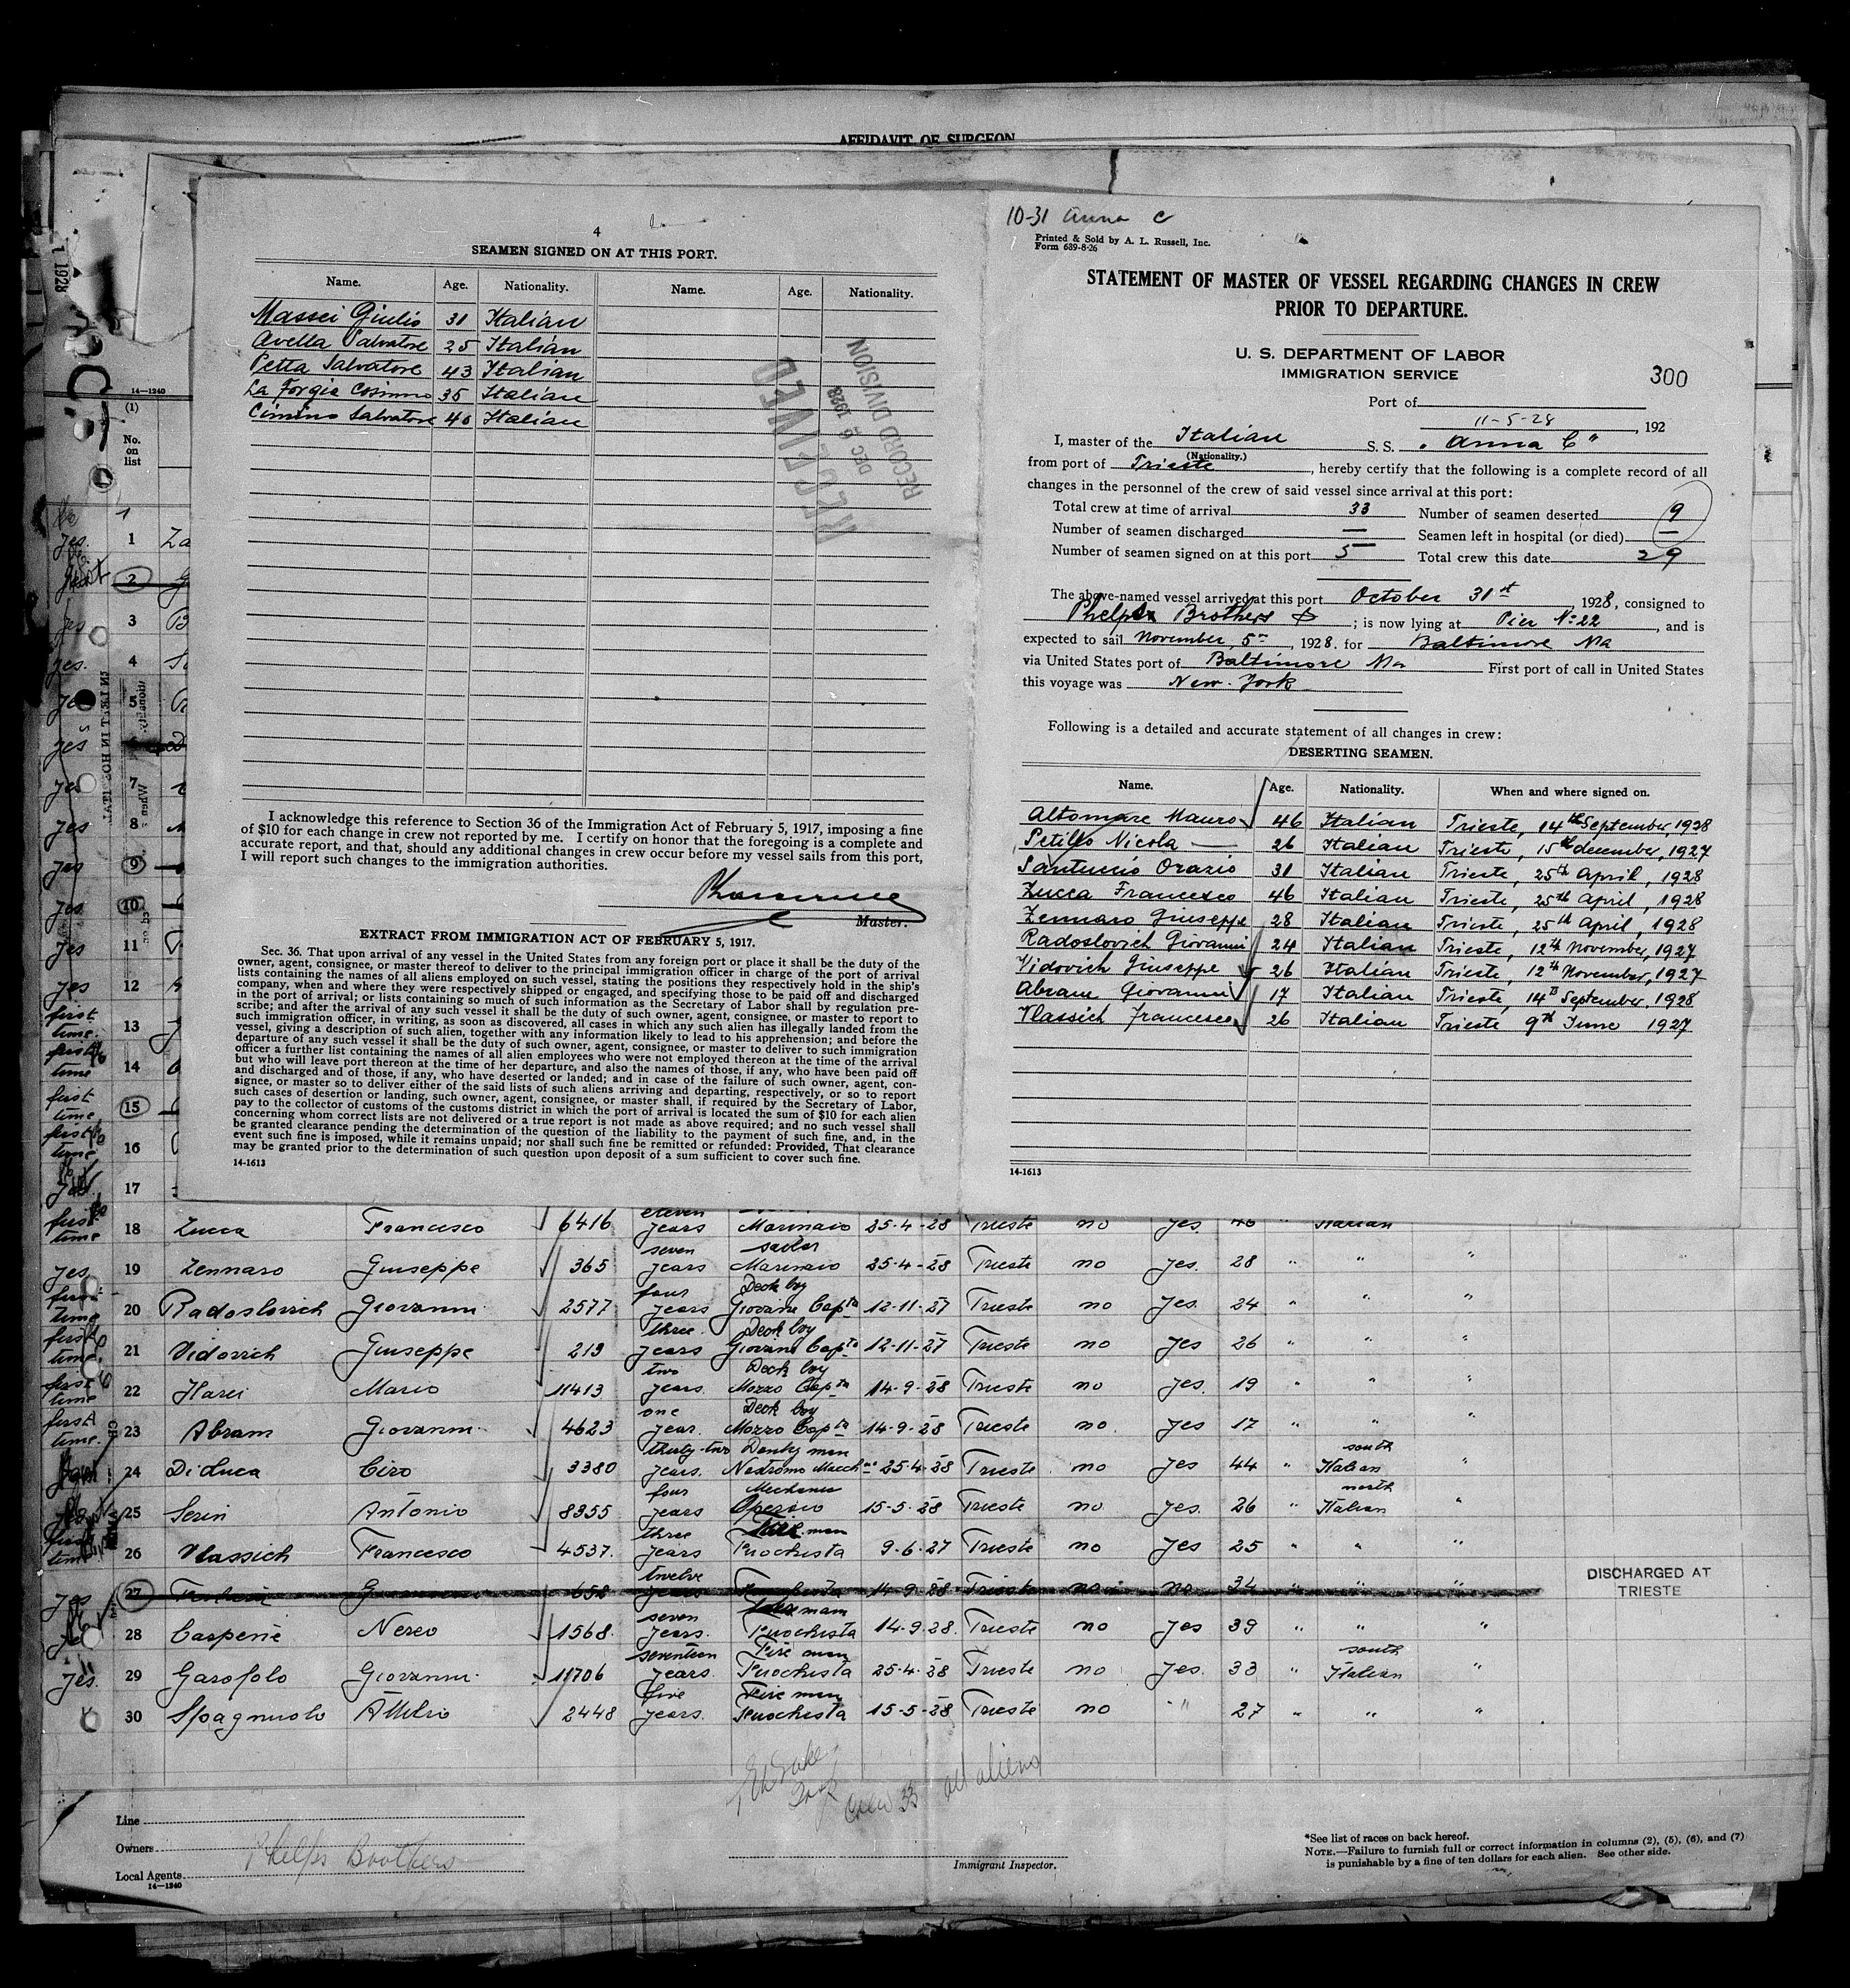 AFFIDAVIT OF SURGEON
4
SEAMEN SIGNED ON AT THIS PORT.
Name. Age. Nationality. Name. Age. Nationality.
Massei Giulio 31 Italian
Avella Salvatore 25 Italian
Petta Salvatore 43 Italian
La Forgia Cosimo 35 Italian
Cimino Salvatore 40 Italian
RECEIVED
DEC 6 1928
RECORD DIVISION
I acknowledge this reference to Section 36 of the Immigration Act of February 5, 1917, imposing a fine
of $10 for each change in crew not reported by me. I certify on honor that the foregoing is a complete and
accurate report, and that, should any additional changes in crew occur before my vessel sails from this port,
I will report such changes to the immigration authorities.
Master.
EXTRACT FROM IMMIGRATION ACT OF FEBRUARY 5, 1917.
Sec. 36. That upon arrival of any vessel in the United States from any foreign port or place it shall be the duty of the
owner, agent, consignee, or master thereof to deliver to the principal immigration officer in charge of the port of arrival
lists containing the names of all aliens employed on such vessel, stating the positions they respectively hold in the ship's
company, when and where they were respectively shipped or engaged, and specifying those to be paid off and discharged
in the port of arrival; or lists containing so much of such information as the Secretary of Labor shall by regulation pre-
scribe; and after the arrival of any such vessel it shall be the duty of such owner, agent, consignee, or master to report to
such immigration officer, in writing, as soon as discovered, all cases in which any such alien has illegally landed from the
vessel, giving a description of such alien, together with any information likely to lead to his apprehension; and before the
departure of any such vessel it shall be the duty of such owner, agent, consignee, or master to deliver to such immigration
officer a further list containing the names of all alien employees who were not employed thereon at the time of the arrival
but who will leave port thereon at the time of her departure, and also the names of those, if any, who have been paid off
and discharged and of those, if any, who have deserted or landed; and in case of the failure of such owner, agent, con-
signee, or master so to deliver either of the said lists of such aliens arriving and departing, respectively, or so to report
such cases of desertion or landing, such owner, agent, consignee, or master shall, if required by the Secretary of Labor,
pay to the collector of customs of the customs district in which the port of arrival is located the sum of $10 for each alien
concerning whom correct lists are not delivered or a true report is not made as above required; and no such vessel shall
be granted clearance pending the determination of the question of the liability to the payment of such fine, and, in the
event such fine is imposed, while it remains unpaid; nor shall such fine be remitted or refunded: Provided, That clearance
may be granted prior to the determination of such question upon deposit of a sum sufficient to cover such fine.
14-1613
10-31 Anna C
Printed & Sold by A. L. Russell, Inc.
Form 689-8-26
STATEMENT OF MASTER OF VESSEL REGARDING CHANGES IN CREW
PRIOR TO DEPARTURE.
U. S. DEPARTMENT OF LABOR
IMMIGRATION SERVICE
300
Port of
11-5-28, 192
I, master of the Italian S. S. "Anna C"
(Nationality.)
from port of Trieste, hereby certify that the following is a complete record of all
changes in the personnel of the crew of said vessel since arrival at this port:
Total crew at time of arrival 33 Number of seamen deserted 9
Number of seamen discharged — Seamen left in hospital (or died) —
Number of seamen signed on at this port 5 Total crew this date 29
The above-named vessel arrived at this port October 31st 1928, consigned to
Phelps Brothers; is now lying at Pier No 22, and is
expected to sail November 5th, 1928. for Baltimore Ma
via United States port of Baltimore Ma First port of call in United States
this voyage was New-York
Following is a detailed and accurate statement of all changes in crew:
DESERTING SEAMEN.
Name. Age. Nationality. When and where signed on.
Altomare Mauro 46 Italian Trieste, 14th September, 1928
Petillo Nicola 26 Italian Trieste, 15th december, 1927
Santuccio Orazio 31 Italian Trieste, 25th April, 1928
Zucca Francesco 46 Italian Trieste, 25th April, 1928
Zennaro Giuseppe 28 Italian Trieste, 25th April, 1928
Radoslovich Giovanni 24 Italian Trieste, 12th November, 1927
Vidovich Giuseppe 26 Italian Trieste, 12th November, 1927
Abram Giovanni 17 Italian Trieste, 14th September, 1928
Vlassich Francesco 26 Italian Trieste 9th June 1927
14-1613
1 1928
14-1240
(1)
No.
on
list
yes. 1 Za
2
yes 3 B
yes. 4
5
yes
yes 7
yes 8
yes 9
yes 10
yes 11
yes 12
first
time. 13
first
time 14
first
time 15
first
time 16
17
first
time 18 Zucca Francesco 6416 eleven years Marinaio 25-4-28 Trieste no yes. 46 " Italian
yes 19 Zennaro Giuseppe 365 seven years sailor Marinaio 25-4-28 Trieste no yes. 28 " " "
first
time 20 Radoslovich Giovanni 2577 four years Deck boy Giovane Copta 12-11-27 Trieste no yes. 24 " " "
first
time 21 Vidovich Giuseppe 219 three years Deck boy Giovane Copta 12-11-27 Trieste no yes 26 " " "
first
time 22 Harei Mario 11413 two years. Deck boy Mozzo Copta 14-9-28 Trieste no yes. 19 " " "
first
time. 23 Abram Giovanni 4623 one year. Deck boy Mozzo Copta 14-9-28 Trieste no. yes 17 " " "
24 Di Luca Ciro 3380 thirty-two years. Donkyman 25-4-28 Trieste no yes 44 " south Italian "
25 Serin Antonio 8355 four years Mechanic Operaio 15-5-28 Trieste no. yes. 26 " north Italian "
first
time 26 Vlassich Francesco 4537. three years Fireman Fuochista 9-6-27 Trieste no yes 25 " "
yes 27 652 twelve years 14-9-28 Trieste no no 34 " " " DISCHARGED AT
TRIESTE
28 Carpenè Nereo 1568. seven years. Fireman Fuochista 14-9-28. Trieste no yes 39 " " "
yes. 29 Garofolo Giovanni 11706 seventeen years. Fire man Fuochista 25-4-28 Trieste no yes. 33 " south Italian "
30 Spagnuolo Attilio 2448 five years. Fire man Fuochista 15-5-28 Trieste no " 27 " " "
Crew 33 all aliens
Line
Owners
Phelps Brothers
Local Agents
14-1240
Immigrant Inspector.
*See list of races on back hereof.
NOTE.—Failure to furnish full or correct information in columns (2), (5), (6), and (7)
is punishable by a fine of ten dollars for each alien. See other side.